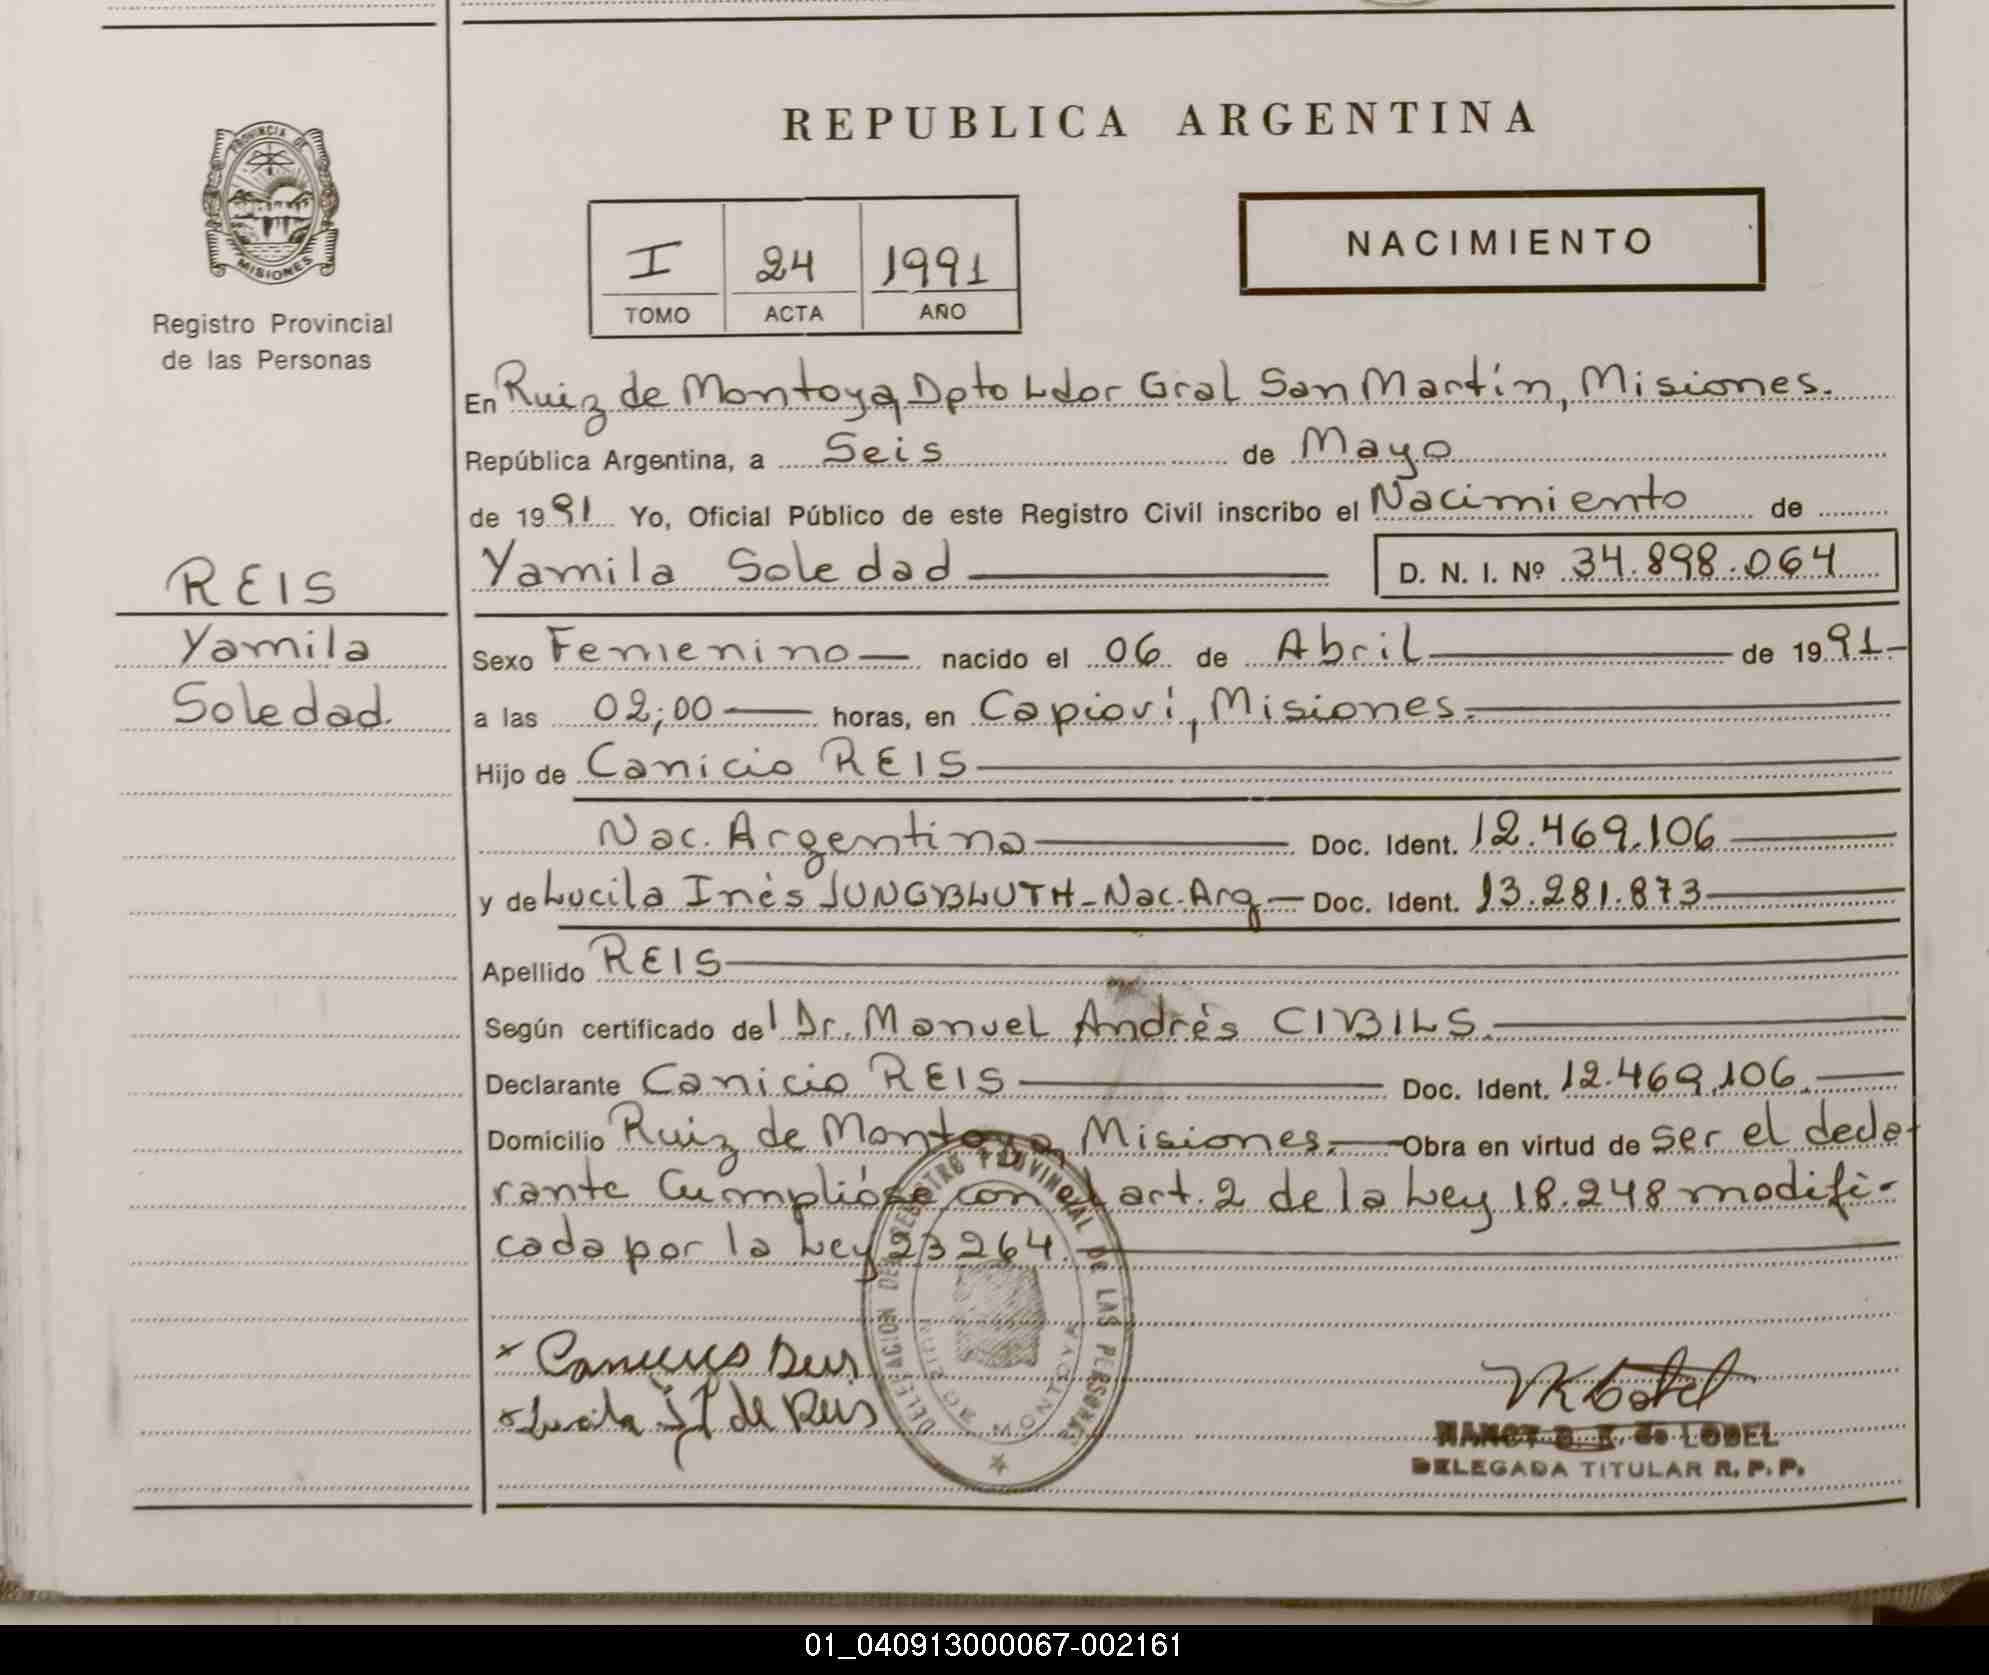 REPUBLICA ARGENTINA
PROVINCIA DE
MISIONES
Registro Provincial
de las Personas
I 24 1991
TOMO ACTA AÑO
NACIMIENTO
En Ruiz de Montoya, Dpto Ldor Gral San Martín, Misiones.
República Argentina, a Seis de Mayo
de 1991 Yo, Oficial Público de este Registro Civil inscribo el Nacimiento de
Yamila Soledad D. N. I. Nº 34.898.064
REIS
Yamila
Soledad.
Sexo Femenino nacido el 06 de Abril de 1991
a las 02,00 horas, en Capioví, Misiones.
Hijo de Canicio REIS
Nac. Argentina Doc. Ident. 12.469.106
y de Lucila Inés JUNGBLUTH - Nac. Arg Doc. Ident. 13.281.873
Apellido REIS
Según certificado del Dr. Manuel Andrés CIBILS.
Declarante Canicio REIS Doc. Ident. 12.469.106.
Domicilio Ruiz de Montoya Misiones. Obra en virtud de ser el decla-
rante Cumplióse con el art. 2 de la Ley 18.248 modifi-
cada por la Ley 23264.
DELEGACION DEL REGISTRO PROVINCIAL DE LAS PERSONAS
MONTOYA
Lucila J de Reis
de LOBEL
DELEGADA TITULAR R. P. P.
01_040913000067-002161